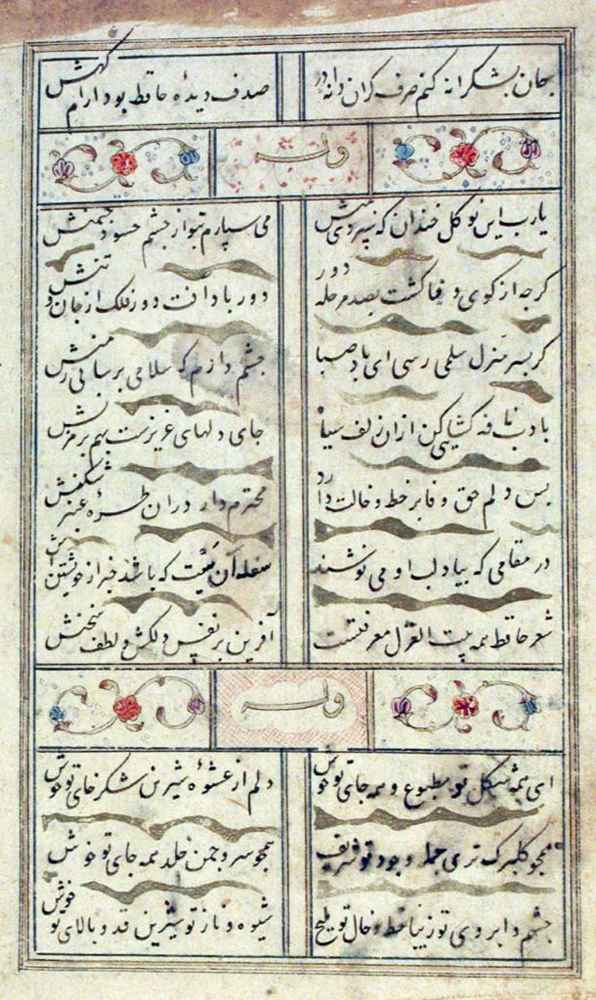 بجان بشکرانه کنم صرف کران دانه در
صدف دیده حافظ بود آرام کهش
وله
یارب این نوکل خندان که سپردی بمنش
می سپارم بتو از جشم حسود جمنش
کرجه از کوی وفا کشت بصد مرحله دور
دور بادا افت دور فلک از جان و تنش
کر بسر منزل سلمی رسی ای باد صبا
جشم دارم که سلامی برسانی ز منش
بادب نافه کشایی کن ازان زلف سیاه
جای دلهای عزیزست بهم بر مزنش
بس دلم حق وفا بر خط و خالت دارد
محترم دار دران طره عنبر شکنش
در مقامی که بیاد لب او می نوشند
سفله آن نیست که باشد خبر از خویشتنش
شعر حافظ همه بیت الغزل معرفتست
آفرین بر نفس دلکش و لطف سخنش
وله
ای همه شکل تو مطبوع و همه جای تو خوش
دلم از عشوه شیرین شکرخای تو خوش
همجو کلبرک تری جمله وجود تو شریف
همجو سرو جمن خلد همه جای تو خوش
جشم و ابروی تو زیبا خط و خال تو ملیح
شیوه و ناز تو شیرین قد و بالای تو خوش